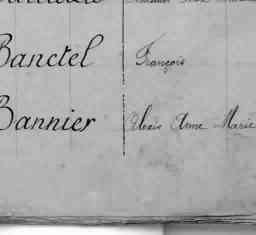 Banctel François
Bannier Alexis Anne Marie